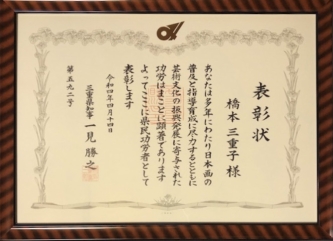 表彰状
橋本 三重子 様
あなたは多年にわたり日本画の
普及と指導育成に尽力するとともに
芸術文化の振興発展に寄与された
功労はまことに顕著であります
よってここに県民功労者として
表彰します
令和四年四月十四日
三重県知事 一見 勝之
第五九二号